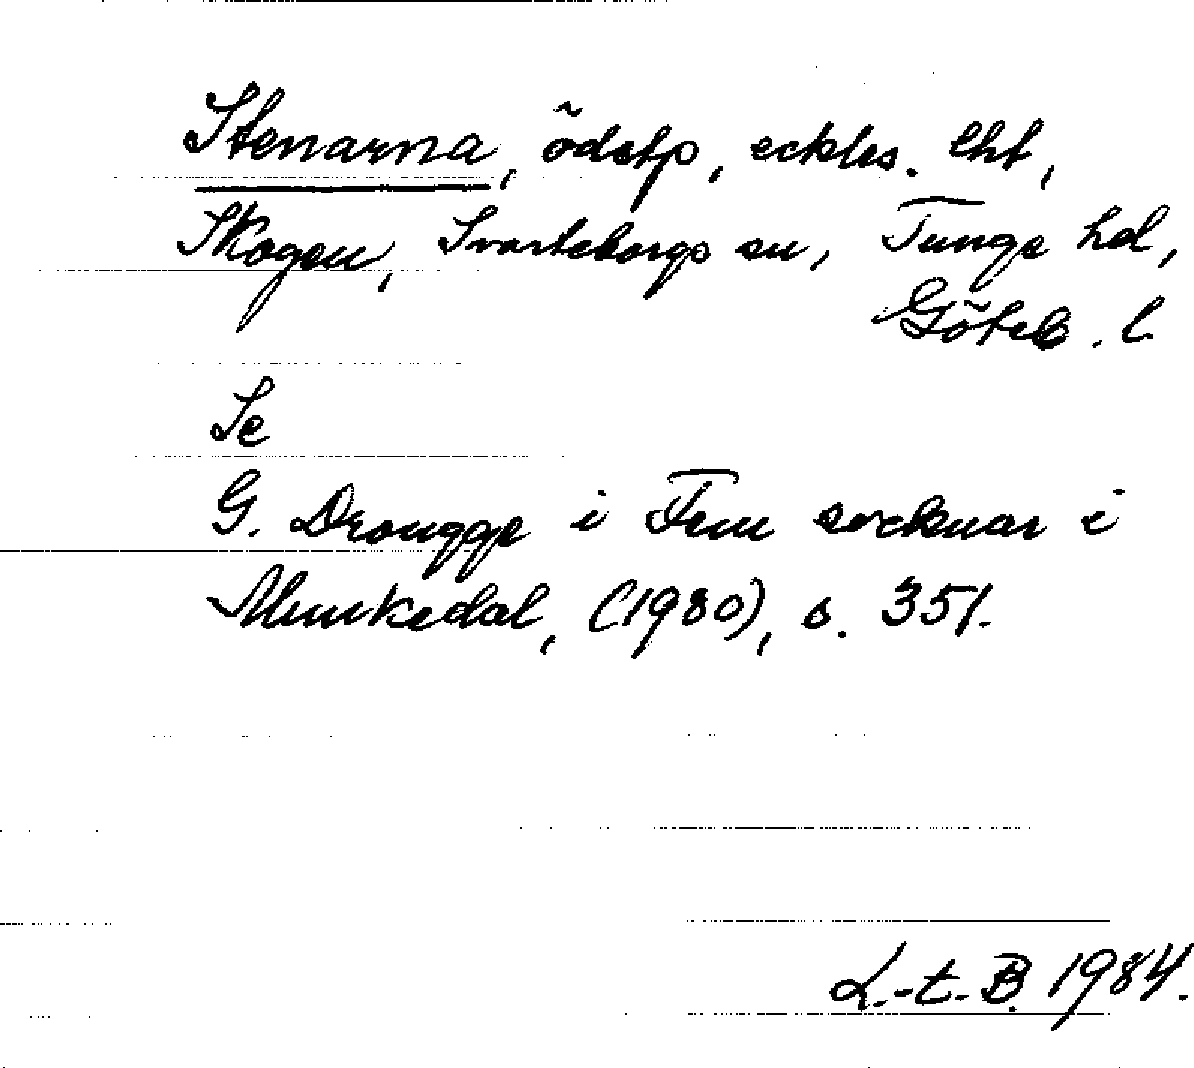 Stenarna, ödstp, eckles. lht,
Skogen, Svarteborgs sn, Tunge hd,
Göteb. l.
Se
G. Drougge i Fem socknar i
Munkedal, (1980), s. 351.
L.-t. B. 1984.